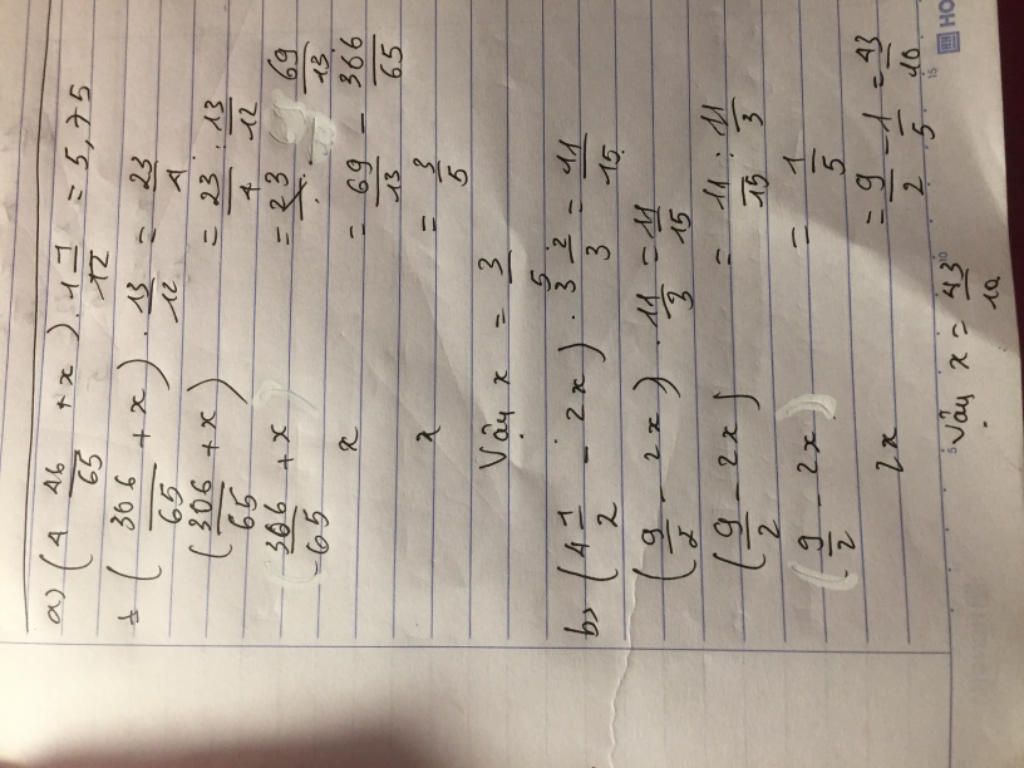 a) (4 46/65 + x) . 1 1/12 = 5,75
(306/65 + x) . 13/12 = 23/4
(306/65 + x) = 23/4 : 13/12
(306/65 + x) = 69/13
x = 69/13 - 306/65
x = 3/5
Vậy x = 3/5
b) (4 1/2 - 2x) . 3 2/3 = 11/15
(9/2 - 2x) . 11/3 = 11/15
(9/2 - 2x) = 11/15 : 11/3
(9/2 - 2x) = 1/5
2x = 9/2 - 1/5 = 43/10
Vậy x = 43/10
5
10
15
HO